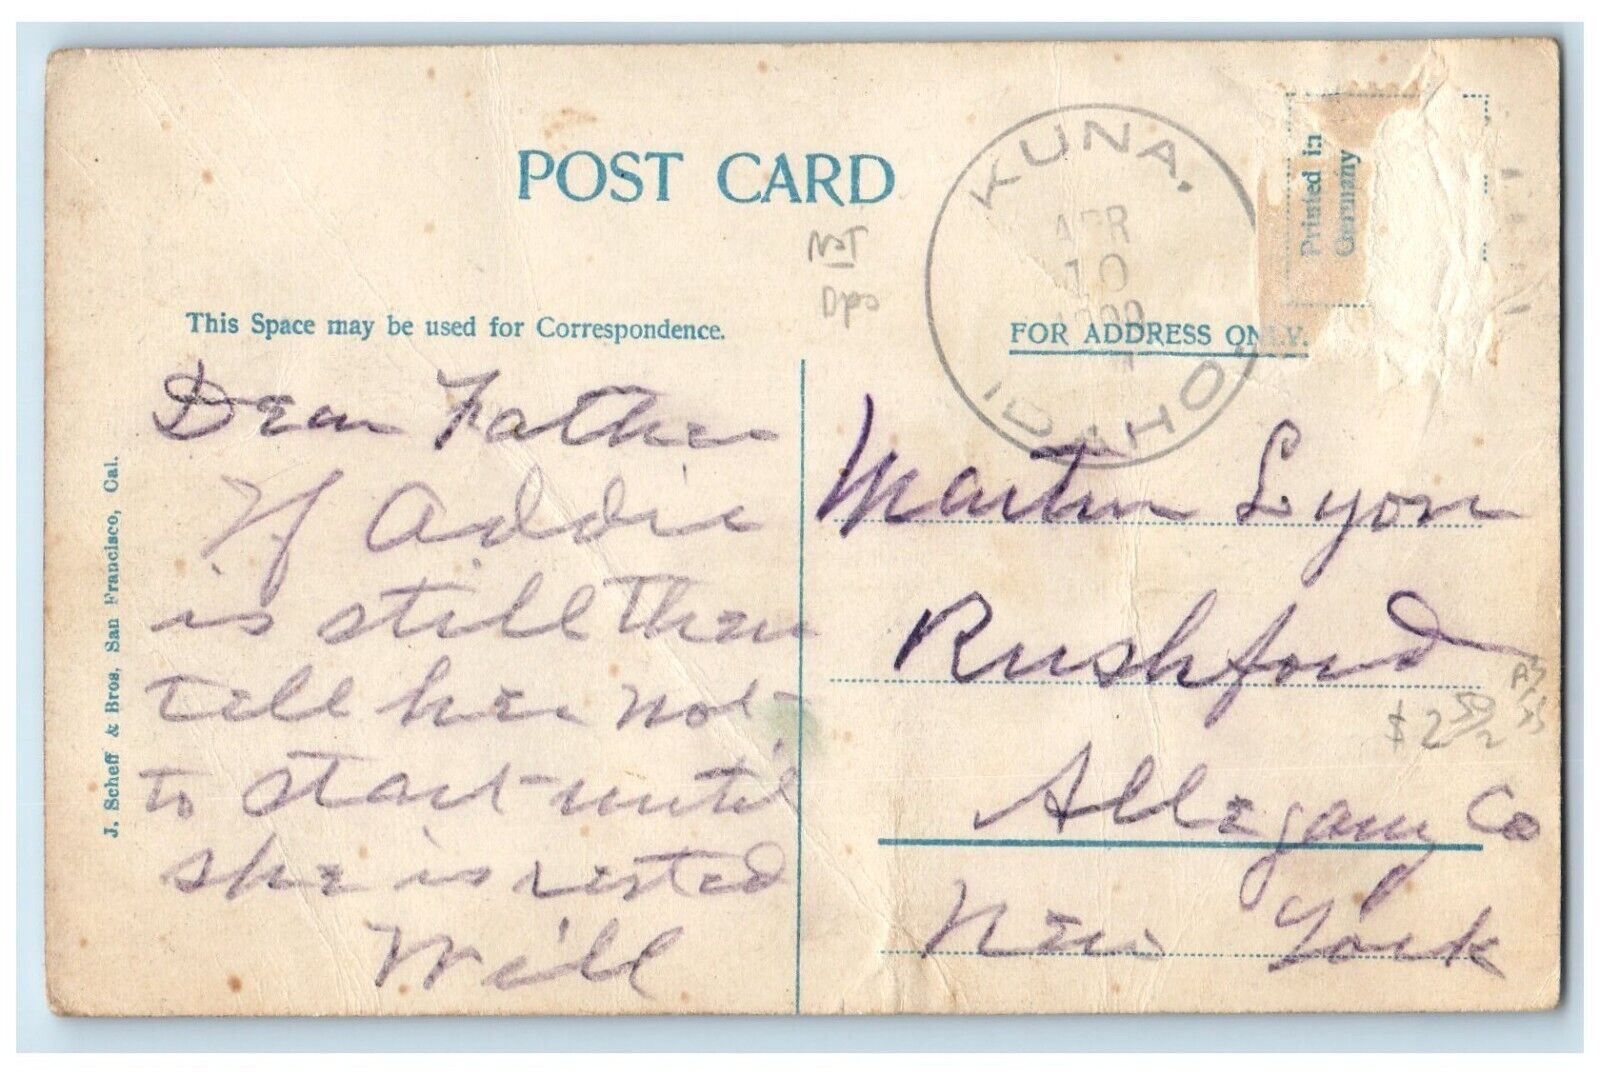 POST CARD
KUNA,
APR
10
1909
IDAHO.
Printed in
Germany
NOT
Dpo
This Space may be used for Correspondence.
FOR ADDRESS ONLY.
Dear Father
If Addie
is still there
tell her not
to start until
she is rested
Will
Martin Lyon
Rushford
Allegany Co
New York
$2 50/2
J. Scheff & Bros. San Francisco, Cal.